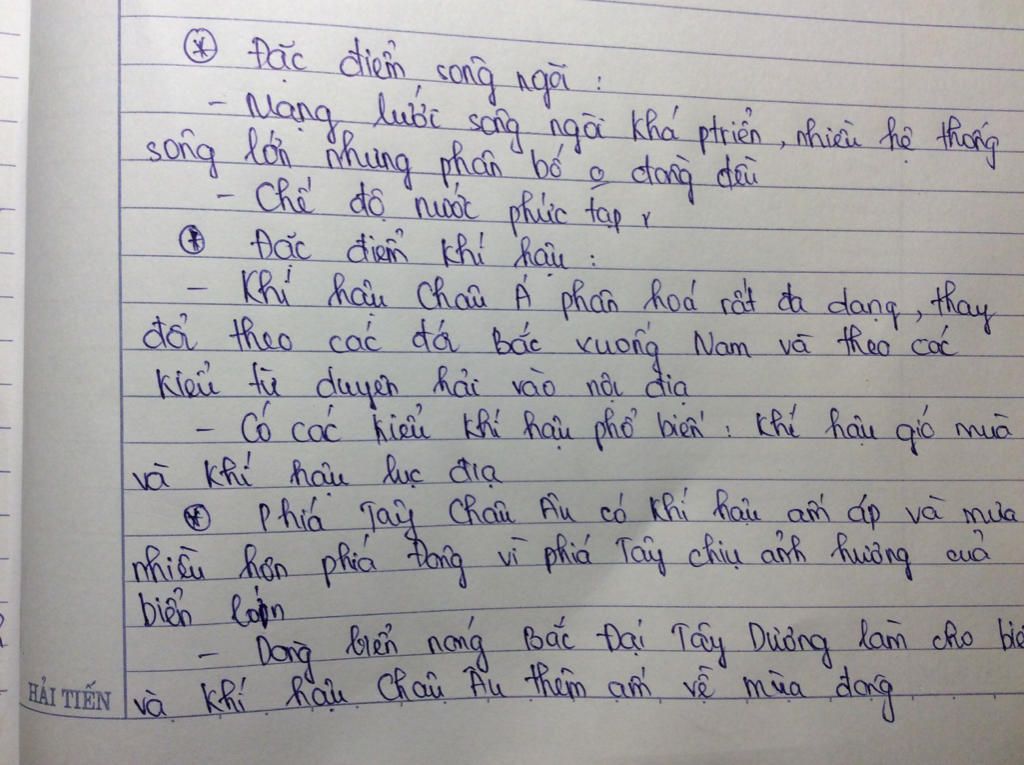 * Đặc điểm sông ngòi :
- Mạng lưới sông ngòi khá ptriển, nhiều hệ thống
sông lớn nhưng phân bố o đồng đều
- Chế độ nước phức tạp
* Đặc điểm khí hậu :
- Khí hậu Châu Á phân hoá rất đa dạng, thay
đổi theo các đới Bắc xuống Nam và theo các
kiểu từ duyên hải vào nội địa
- Có các kiểu khí hậu phổ biến : khí hậu gió mùa
và khí hậu lục địa
* Phía Tây Châu Âu có khí hậu ấm áp và mưa
nhiều hơn phía Đông vì phía Tây chịu ảnh hưởng của
biển lớn
- Dòng biển nóng Bắc Đại Tây Dương làm cho biể
HẢI TIẾN và khí hậu Châu Âu thêm ấm về mùa đông